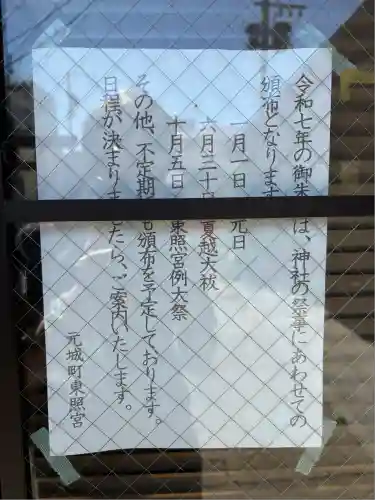 令和七年の御朱は、神社の祭事にあわせての
頒布となります
一月一日 元旦
六月三十日 夏越大祓
十月五日 東照宮例大祭
その他、不定期も頒布を予定しております。
日程が決まりましたら、ご案内いたします。
元城町東照宮